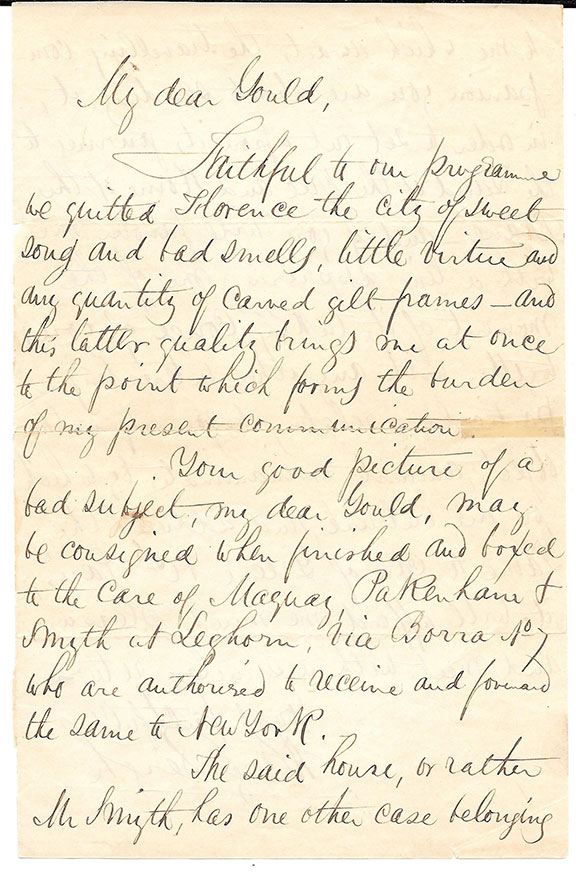 My dear Gould,
Faithful to our programme
we quitted Florence the city of sweet
song and bad smells, little virtue and
any quantity of carved gilt frames — and
this latter quality brings me at once
to the point which forms the burden
of my present communication.
Your good picture of a
bad subject, my dear Gould, may
be consigned when finished and boxed
to the care of Maquay, Pakenham &
Smyth at Leghorn, Via Borra No 7
who are authorised to receive and forward
the same to New York.
The said house, or rather
Mr Smyth, has one other case belonging